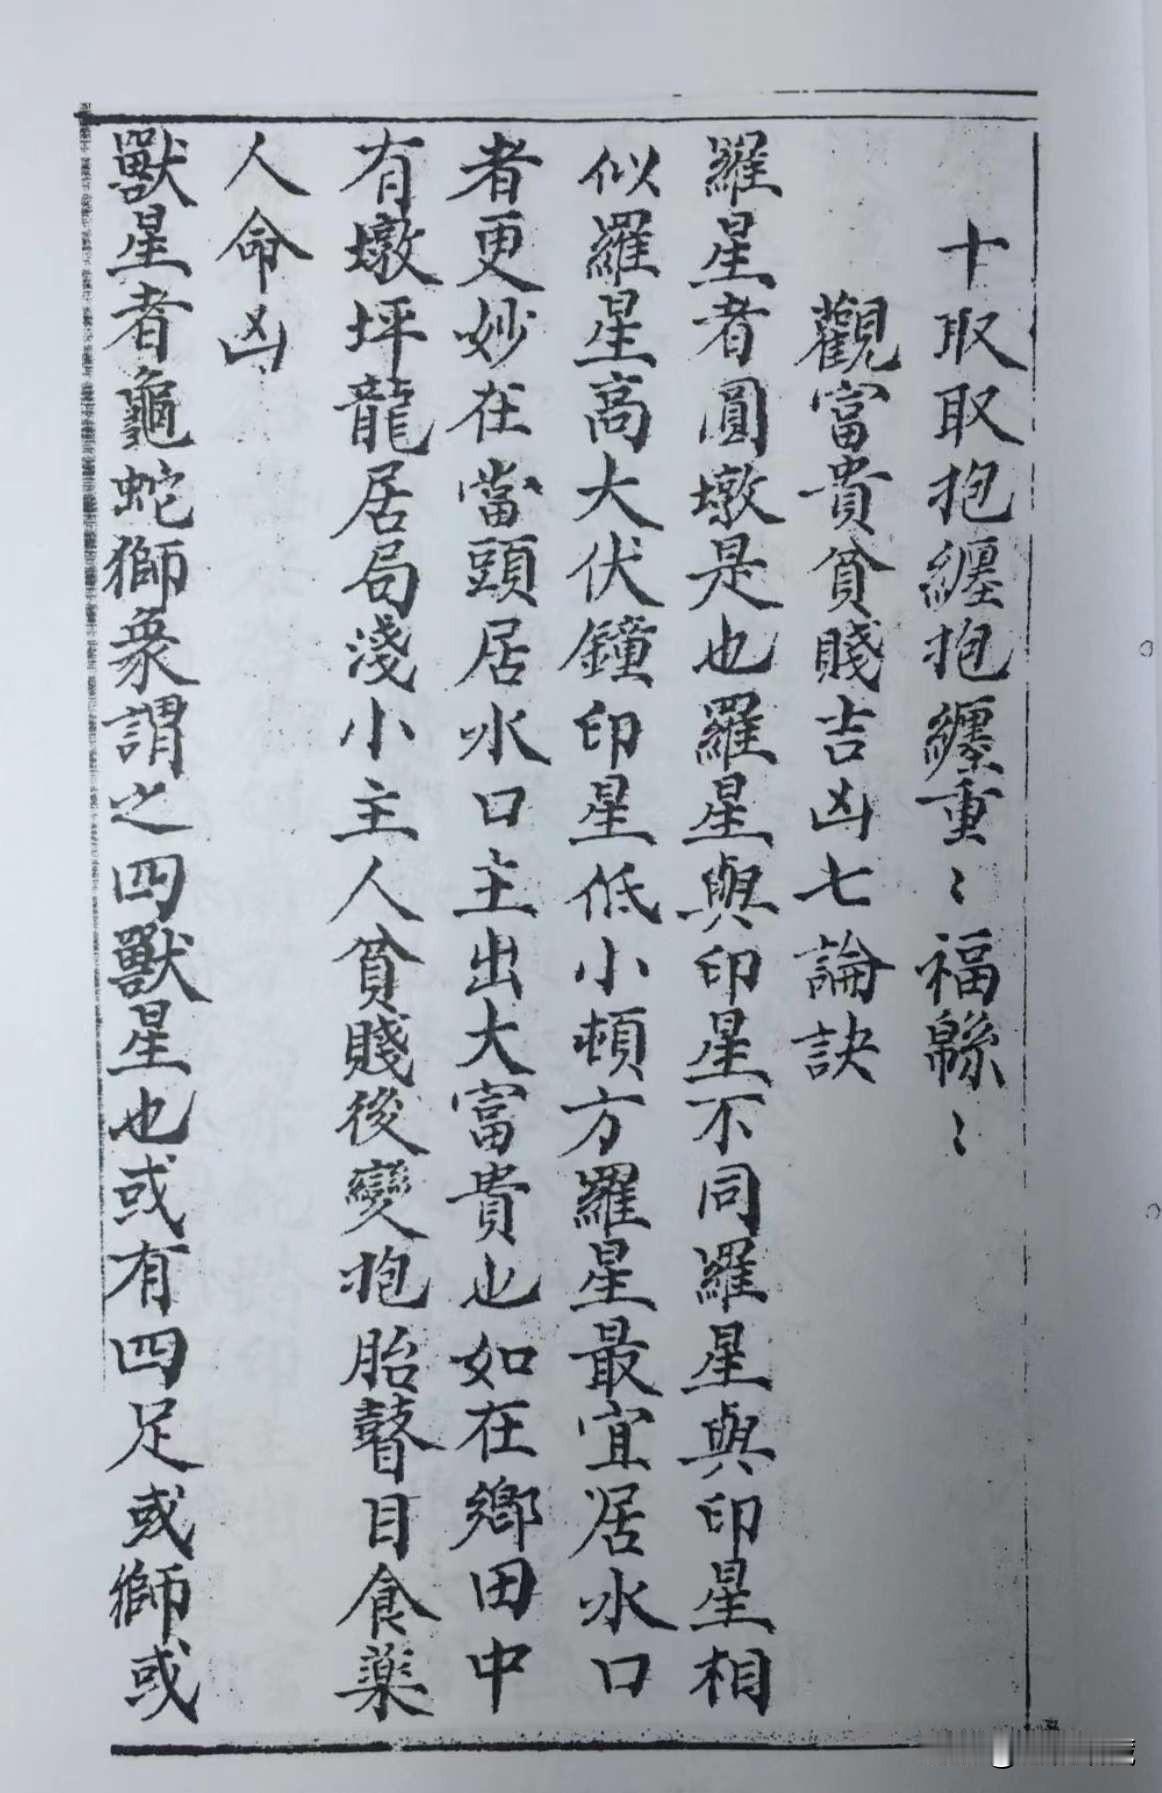 十取取抱纏抱纏重〻福緜〻
觀富貴貧賤吉凶七論訣
羅星者圓墩是也羅星與印星不同羅星與印星相
似羅星高大伏鐘印星低小頓方羅星最宜居水口
者更妙在當頭居水口主出大富貴也如在鄉田中
有墩坪龍居局淺小主人貧賤後變抱胎瞽目食藥
人命凶
獸星者龜蛇獅象謂之四獸星也或有四足或獅或